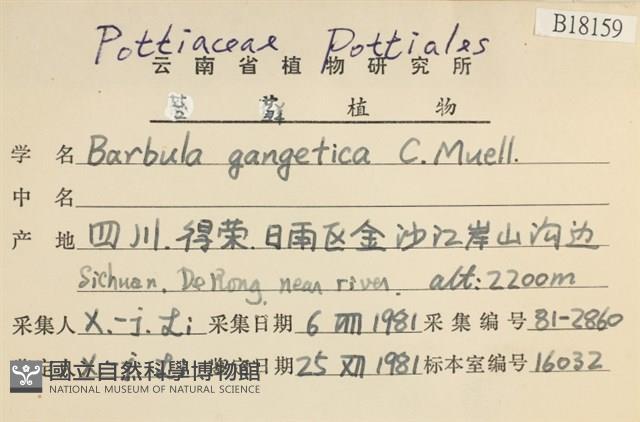 B18159
Pottiaceae Pottiales
云南省植物研究所
苔藓植物
学名 Barbula gangetica C.Muell.
中名
产地 四川.得荣.日雨区金沙江岸山沟边
Sichuan, DeRong, near river. alt: 2200m
采集人 X.-j. Li 采集日期 6 VIII 1981 采集编号 81-2860
X. j. Li 日期 25 XII 1981 标本室编号 16032
國立自然科學博物館
NATIONAL MUSEUM OF NATURAL SCIENCE